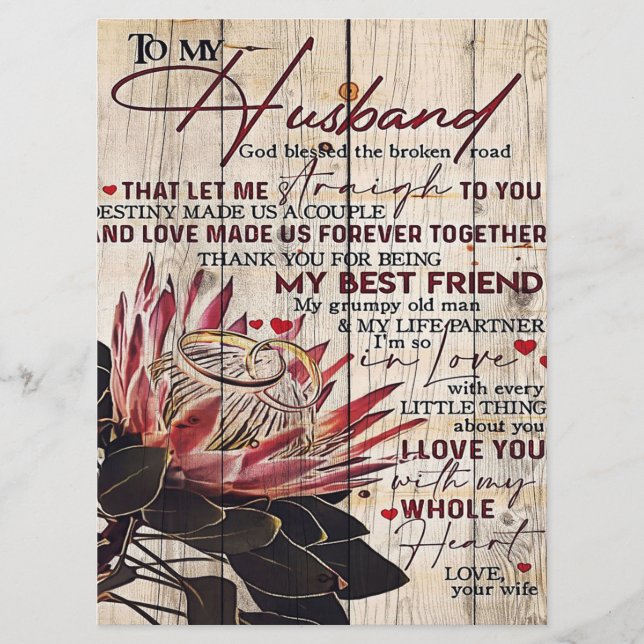 TO MY
Husband
God blessed the broken road
THAT LET ME straigh TO YOU
DESTINY MADE US A COUPLE
AND LOVE MADE US FOREVER TOGETHER
THANK YOU FOR BEING
MY BEST FRIEND
My grumpy old man
& MY LIFE PARTNER
I'm so
in Love
with every
LITTLE THING
about you
I LOVE YOU
with my
WHOLE
Heart
LOVE,
your wife